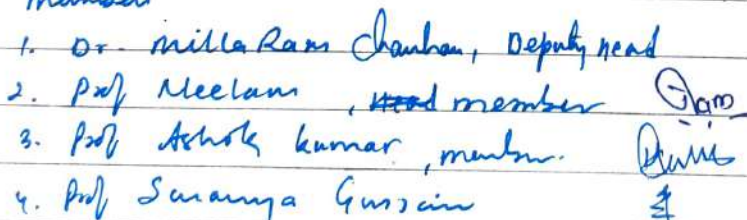 1. Dr. Milla Ram Chauhan, Deputy head
2. Prof Neelam, member
3. Prof Ashok kumar, member.
4. Prof